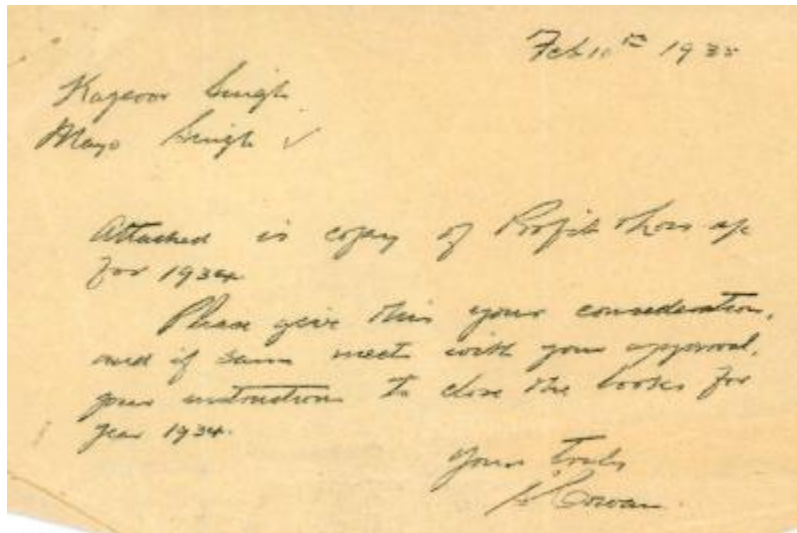 Feb 11th 1935
Kapoor Singh
Mayo Singh ✓
Attached is copy of Profit & Loss a/c
for 1934
Please give this your consideration,
and if same meets with your approval,
your instructions to close the books for
year 1934.
Yours Truly
Cowan.